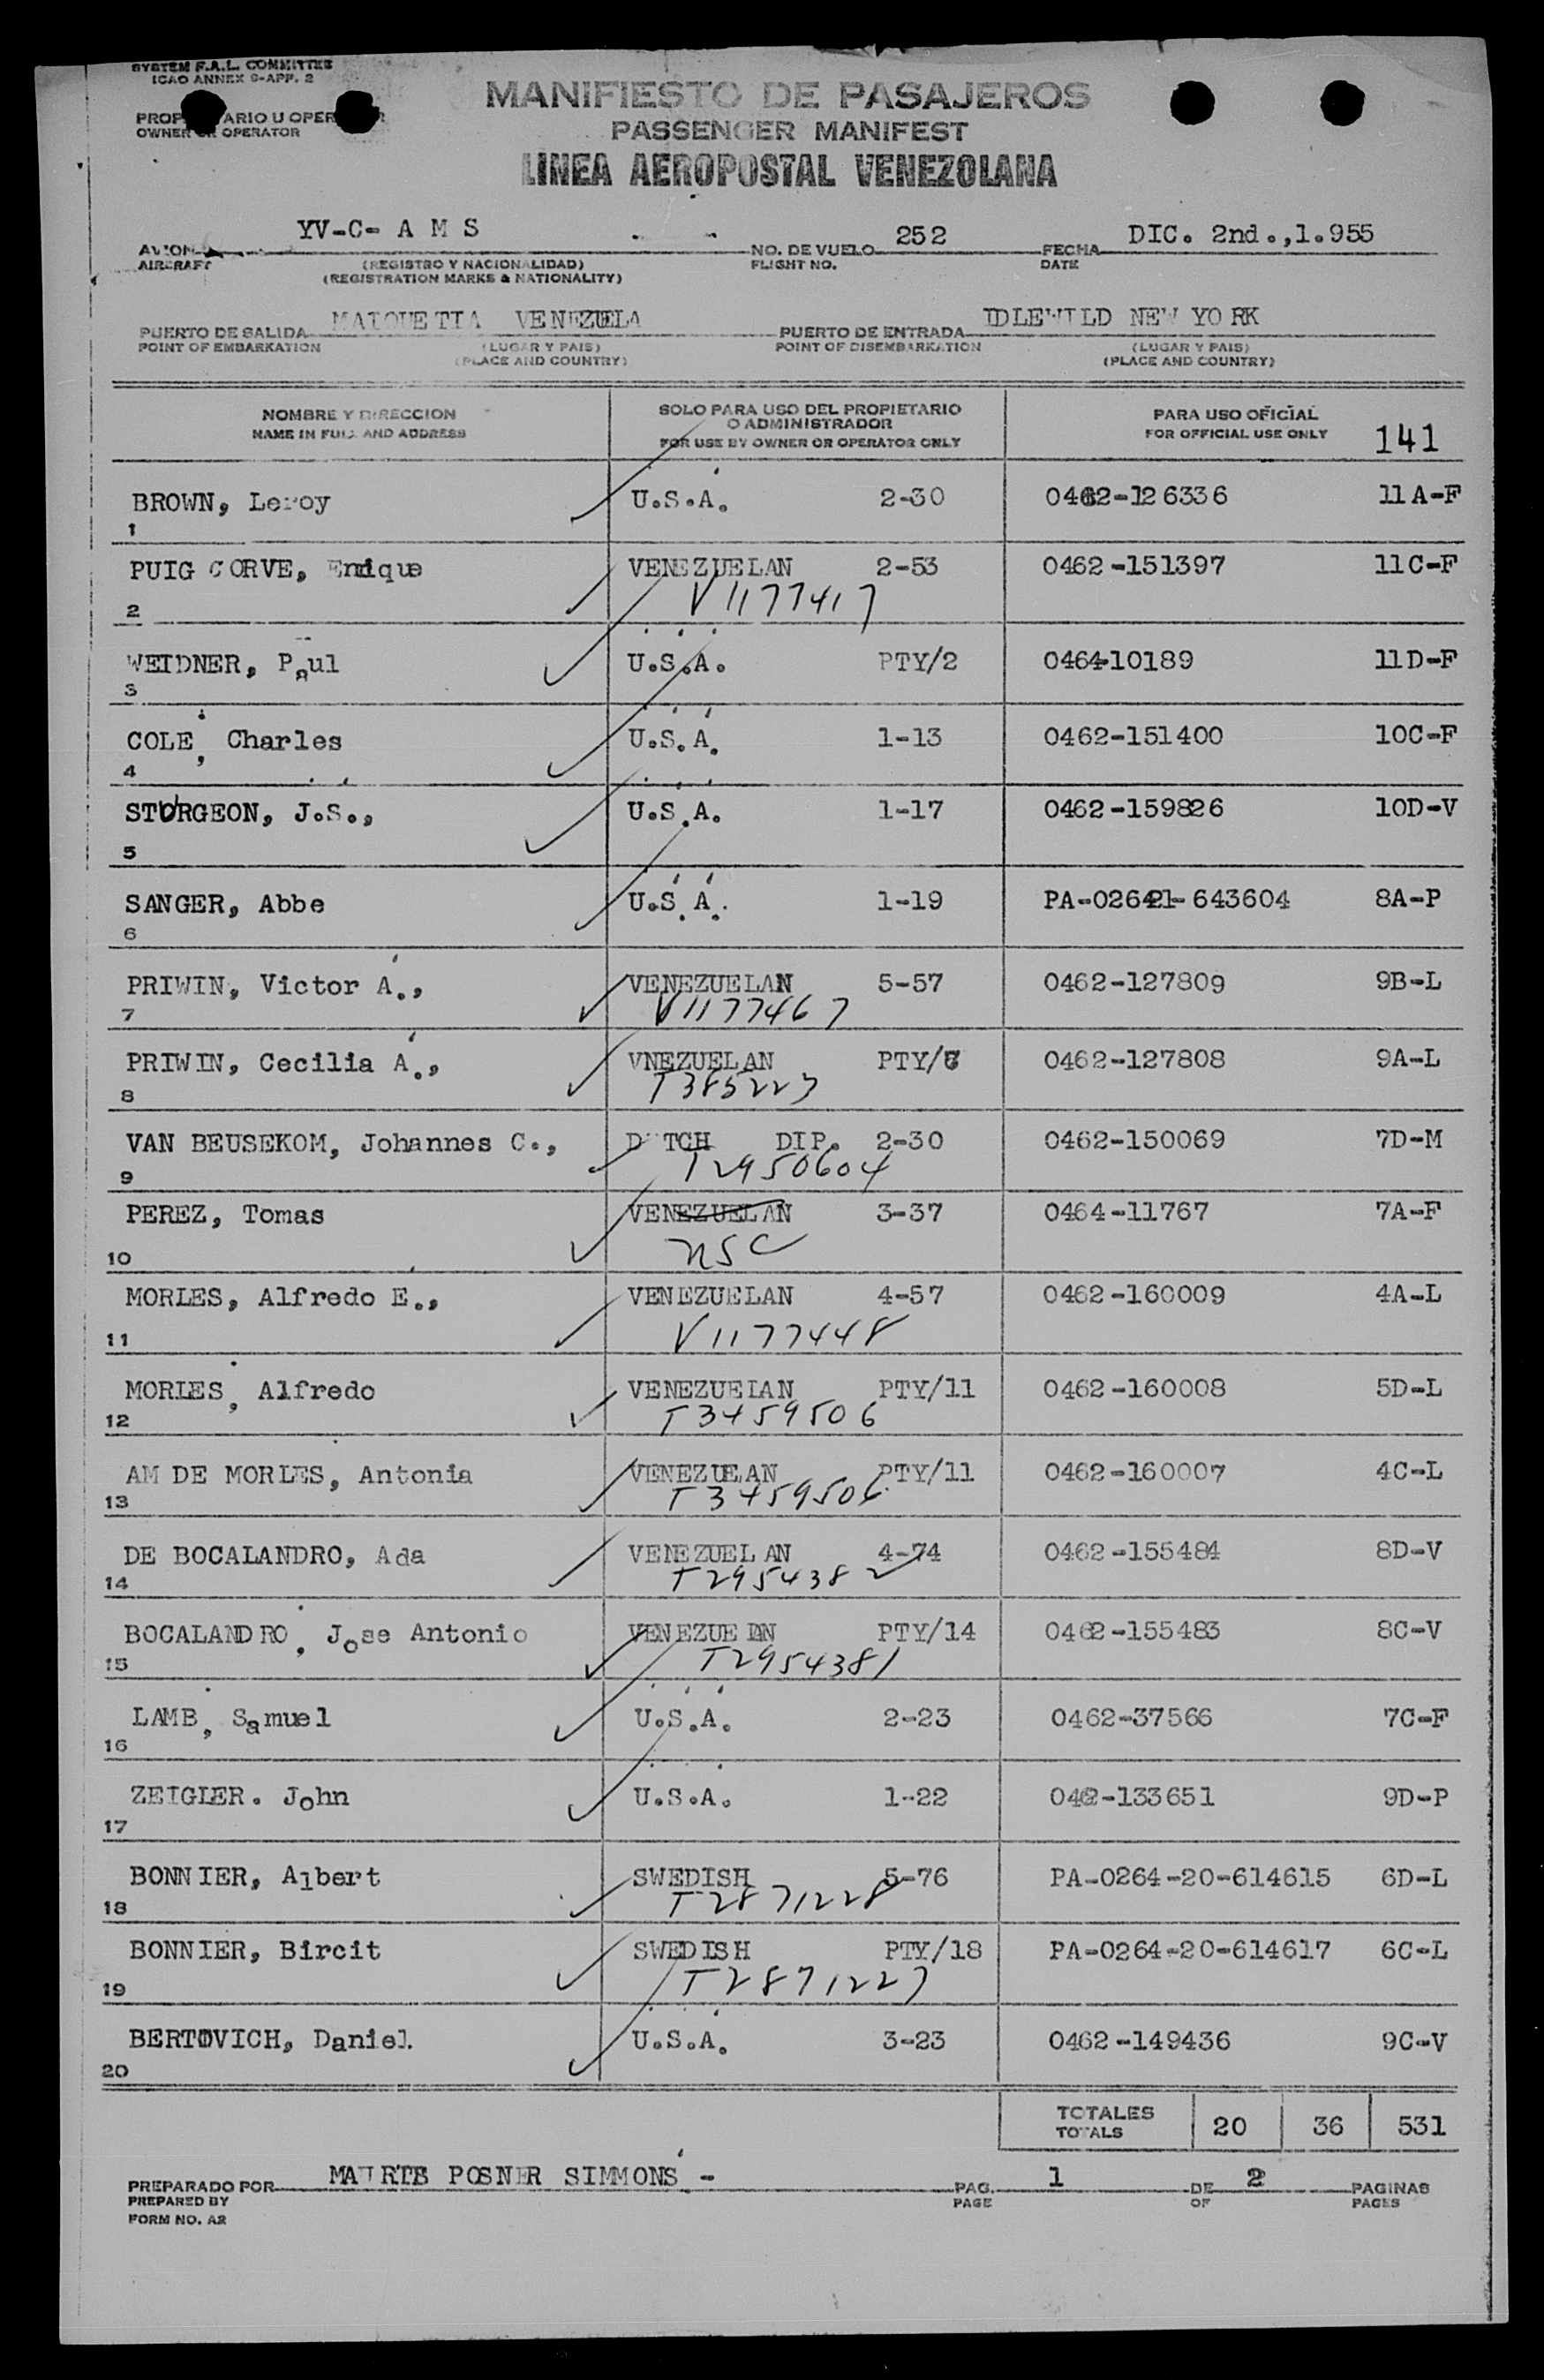 SYSTEM F.A.L. COMMITTEE
ICAO ANNEX 9-APP. 2
MANIFIESTO DE PASAJEROS
PASSENGER MANIFEST
OWNER OR OPERATOR
LINEA AEROPOSTAL VENEZOLANA
YV-C- A M S 252 DIC. 2nd.,1.955
AVION NO. DE VUELO FECHA
AIRCRAFT (REGISTRO Y NACIONALIDAD) FLIGHT NO. DATE
(REGISTRATION MARKS & NATIONALITY)
MAIQUETIA VENEZUELA IDLEWILD NEW YORK
PUERTO DE SALIDA PUERTO DE ENTRADA
POINT OF EMBARKATION (LUGAR Y PAIS) POINT OF DISEMBARKATION (LUGAR Y PAIS)
(PLACE AND COUNTRY) (PLACE AND COUNTRY)
NOMBRE Y DIRECCION SOLO PARA USO DEL PROPIETARIO PARA USO OFICIAL
O ADMINISTRADOR
NAME IN FULL AND ADDRESS FOR USE BY OWNER OR OPERATOR ONLY FOR OFFICIAL USE ONLY 141
BROWN, Leroy U.S.A. 2-30 0462-126336 11A-F
1
PUIG CORVE, Enrique VENEZUELAN 2-53 0462-151397 11C-F
2 V1177417
WEIDNER, Paul U.S.A. PTY/2 0464-10189 11D-F
3
COLE, Charles U.S.A. 1-13 0462-151400 10C-F
4
STURGEON, J.S., U.S.A. 1-17 0462-159826 10D-V
5
SANGER, Abbe U.S.A. 1-19 643604 8A-P
6
PRIWIN, Victor A., VENEZUELAN 5-57 0462-127809 9B-L
7 V1177467
PRIWIN, Cecilia A., VNEZUELAN PTY/7 0462-127808 9A-L
8 T385227
VAN BEUSEKOM, Johannes C., DUTCH DIP. 2-30 0462-150069 7D-M
9 T2950604
PEREZ, Tomas VENEZUELAN 3-37 0464-11767 7A-F
10 NSC
MORLES, Alfredo E., VENEZUELAN 4-57 0462-160009 4A-L
11 V1177448
MORLES, Alfredo VENEZUELAN PTY/11 0462-160008 5D-L
12 T3459506
AM DE MORLES, Antonia VENEZUEAN PTY/11 0462-160007 4C-L
13 T3459506
DE BOCALANDRO, Ada VENEZUELAN 4-74 0462-155484 8D-V
14 T2954382
BOCALANDRO, Jose Antonio PTY/14 0462-155483 8C-V
15 T2954381
LAMB, Samuel U.S.A. 2-23 0462-37566 7C-F
16
ZEIGLER. John U.S.A. 1-22 0462-133651 9D-P
17
BONNIER, Albert SWEDISH 5-76 PA-0264-20-614615 6D-L
18 T2871228
BONNIER, Bircit SWEDISH PTY/18 PA-0264-20-614617 6C-L
19 T2871227
BERTOVICH, Daniel U.S.A. 3-23 0462-149436 9C-V
20
TOTALES
TOTALS 20 36 531
POSNER SIMMONS - 1 2
PREPARADO POR PAG. DE PAGINAS
PREPARED BY PAGE OF PAGES
FORM NO. A2